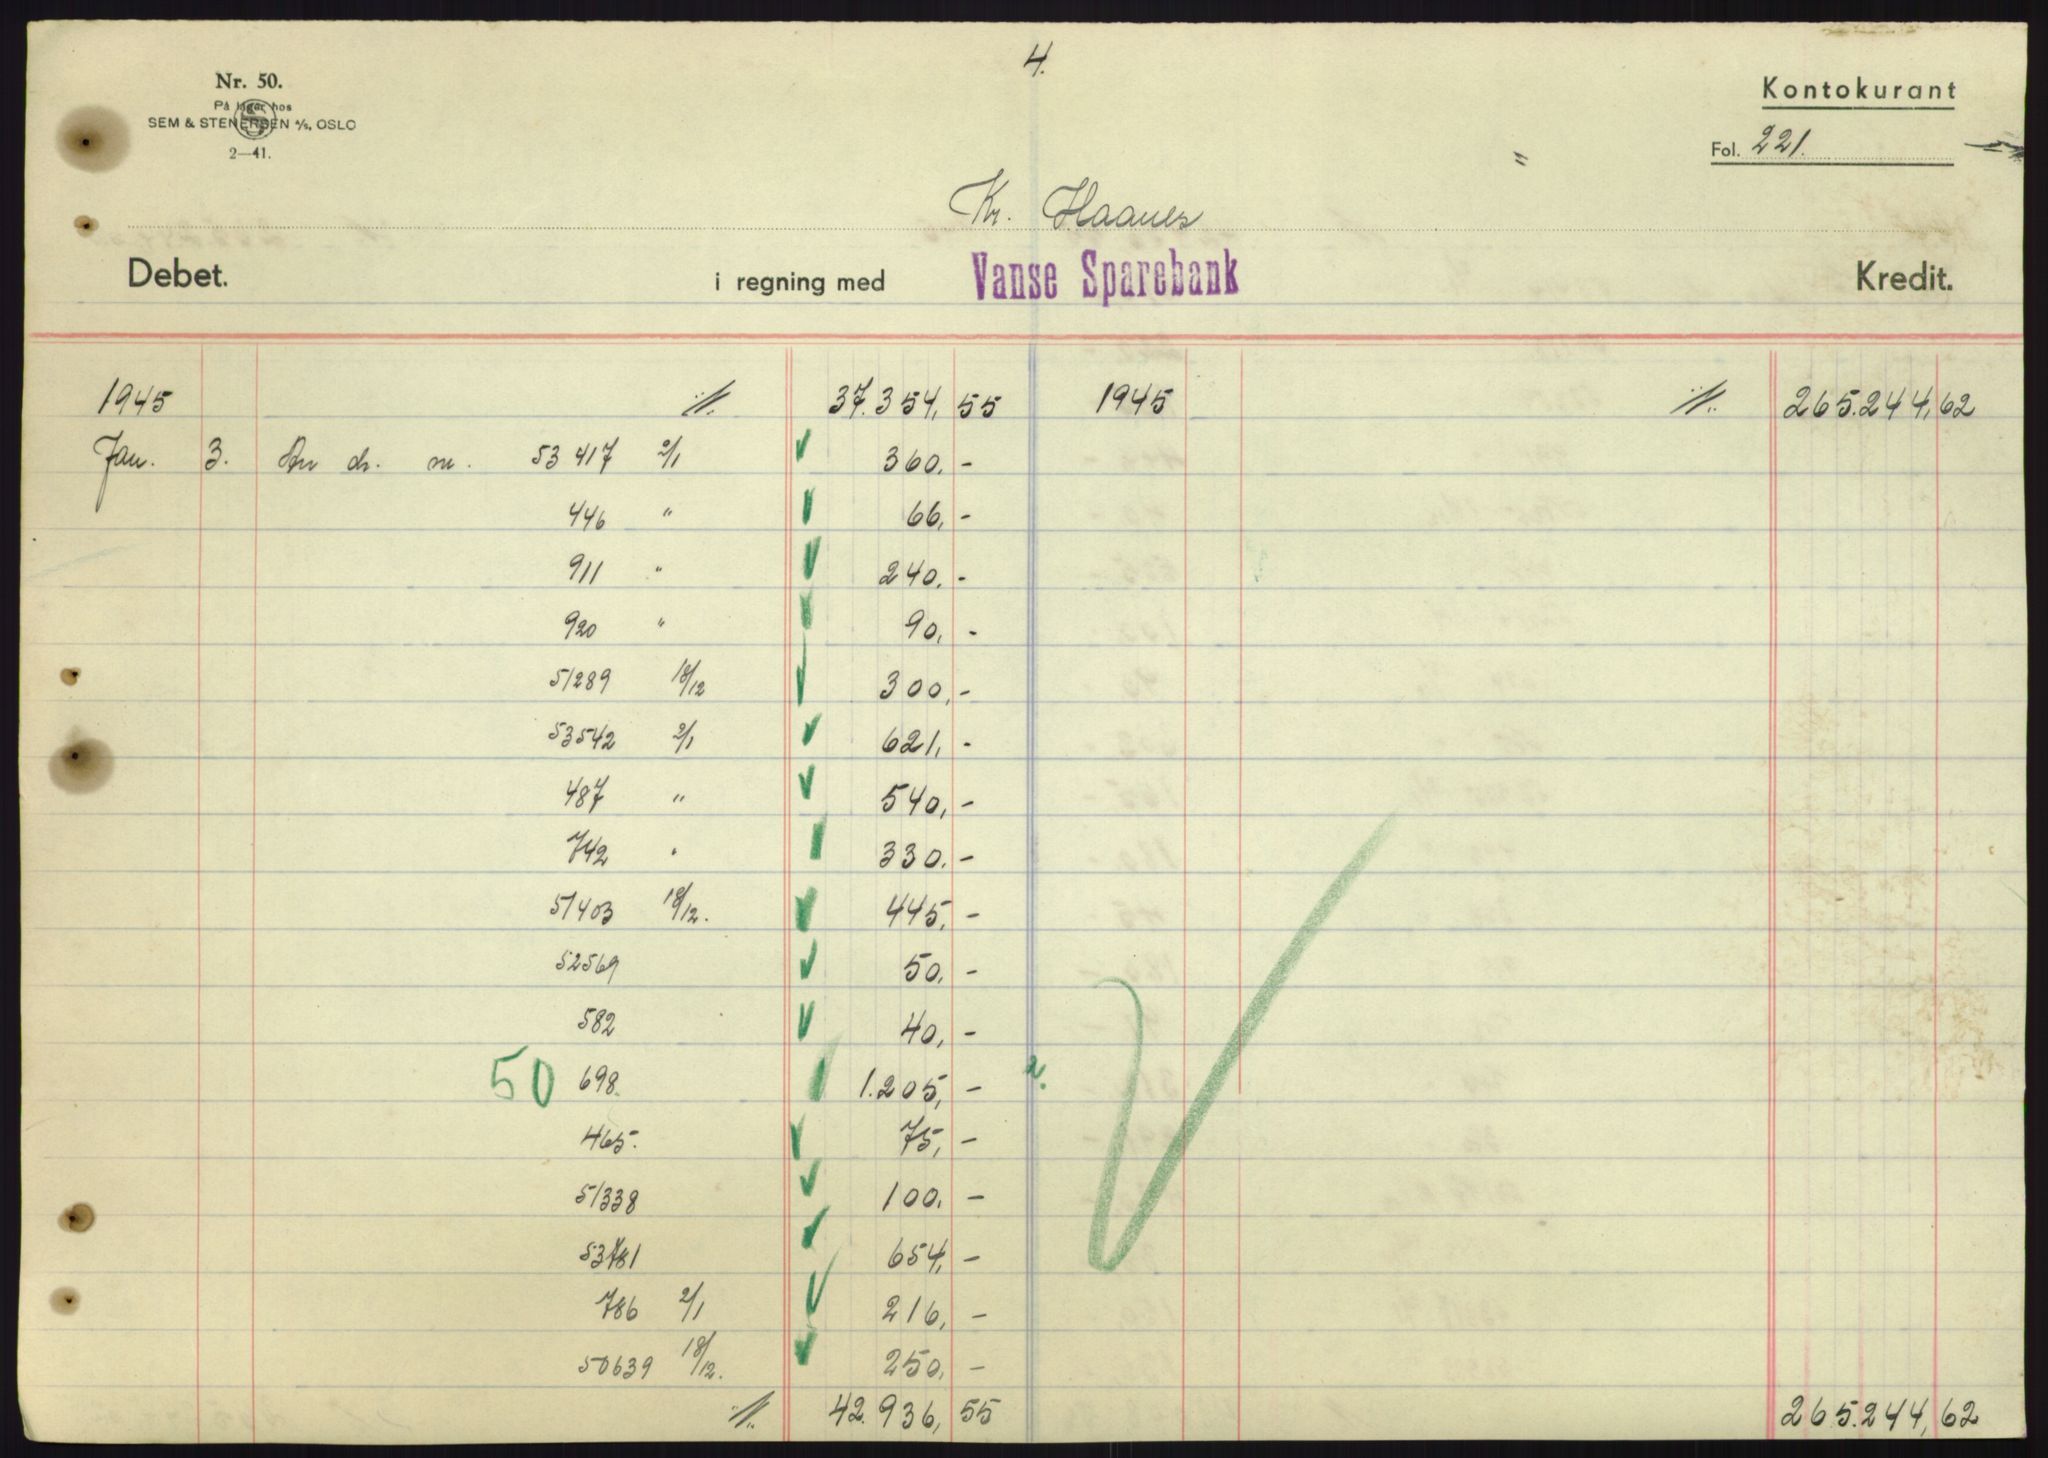 4.
Nr. 50.
På lager hos
SEM & STENERSEN A/S, OSLO
2—41.
Kontokurant
Fol. 221.
Kr. Haanes
Debet. i regning med Vanse Sparebank Kredit.
1945 37.354,55 1945 265.244,62
Jan. 3. An ch. nr. 53417 2/1 360,-
446 " 66,-
911 " 240,-
920 " 90,-
51289 18/12 300,-
53542 2/1 621,-
487 " 540,-
742 " 330,-
51403 18/12. 445,-
52569 50,-
582 40,-
50 698. 1.205,- 2.
465. 75,-
51338 100,-
53781 654,-
786 2/1 216,-
50639 18/12. 250,-
42.936,55 265.244,62